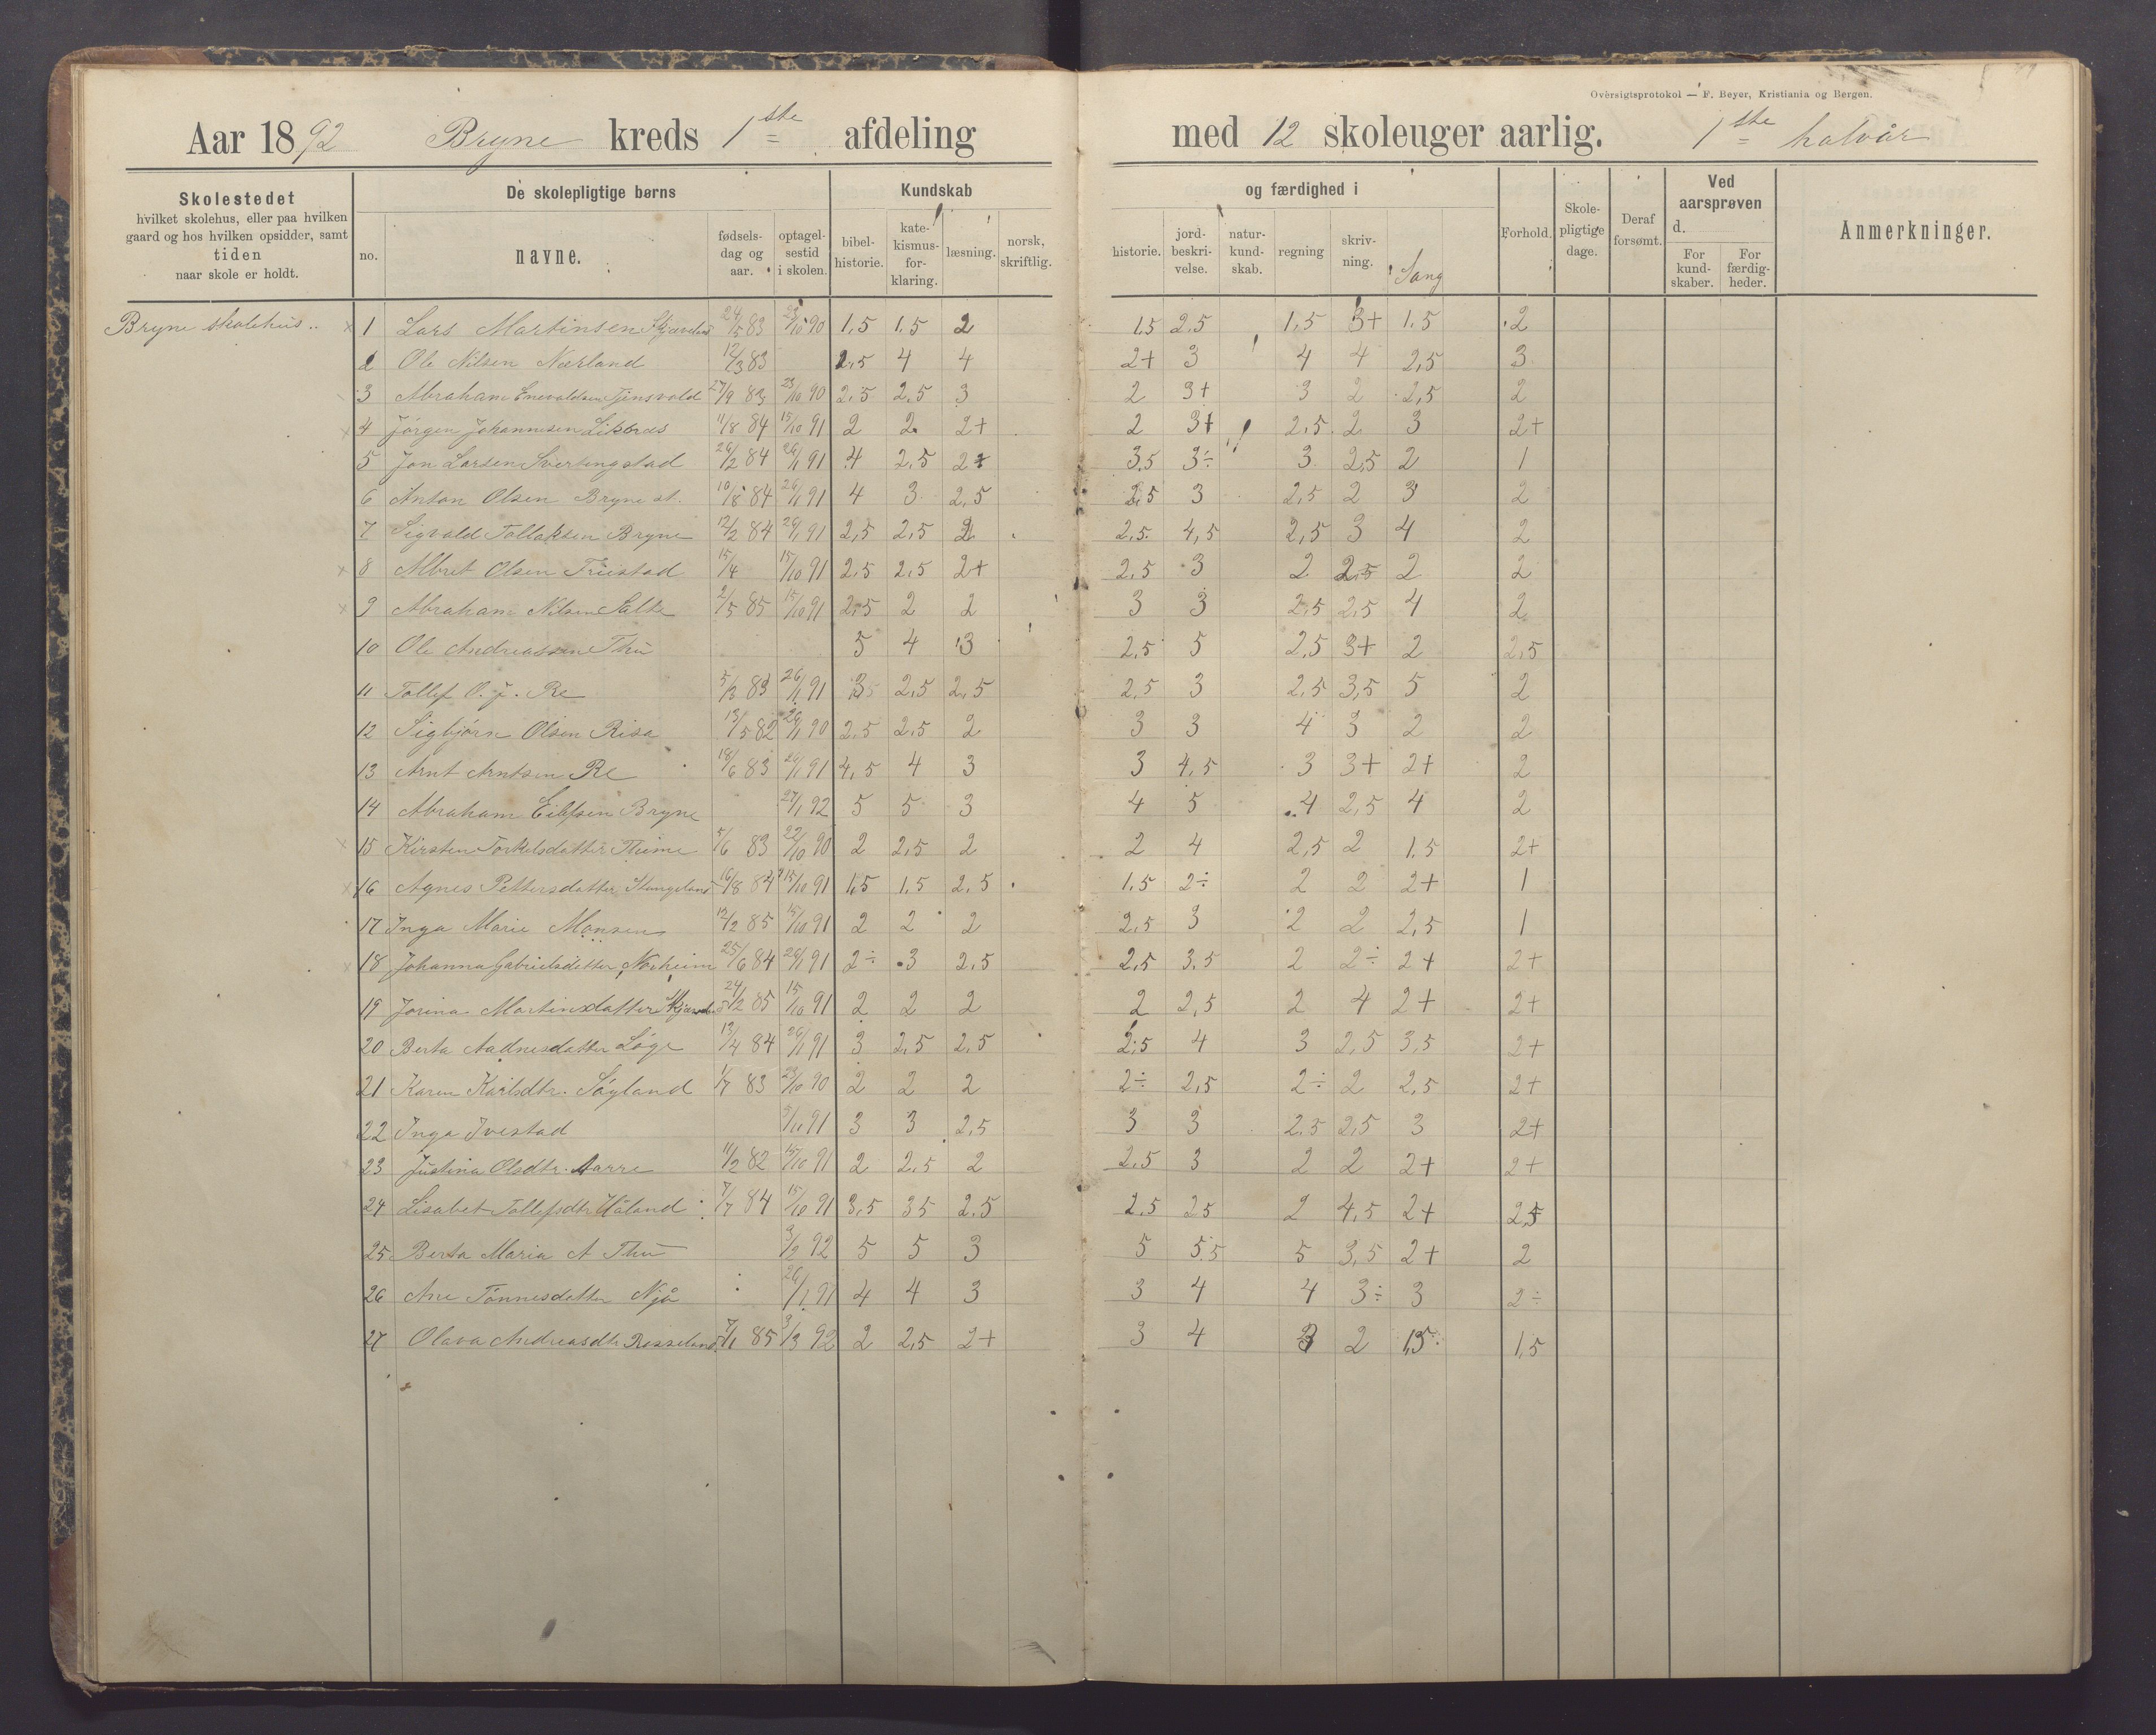 Oversigtsprotokol — F. Beyer, Kristiania og Bergen.
Aar 1892 Bryne kreds 1ste afdeling med 12 skoleuger aarlig. 1ste halvår
Skolestedet hvilket skolehus, eller paa hvilken gaard og hos hvilken opsidder, samt tiden naar skole er holdt.
De skolepligtige børns
no. navne. fødselsdag og aar. optagelsestid i skolen.
Kundskab og færdighed i
bibelhistorie. katekismusforklaring. læsning. norsk, skriftlig. historie. jordbeskrivelse. naturkundskab. regning skrivning. Sang
Forhold. Skolepligtige dage. Deraf forsømt.
Ved aarsprøven d. For kundskaber. For færdigheder.
Anmerkninger.
Bryne skolehus..
× 1 Lars Martinsen 24/5 83 23/10 90 1,5 1.5 2 1.5 2,5 1,5 3+ 1.5 2
2 Ole Nilsen Nærland 12/3 83 2,5 4 4 2+ 3 4 4 2,5 3
3 Abraham Enevaldsen Tjensvold 27/9 83 23/10 90 2,5 2,5 3 2 3+ 3 2 2,5 2
× 4 Jörgen Johannesen 11/8 84 15/10 91 2 2 2+ 2 3+ 2,5 2 3 2+
5 Jon Larsen Svertingstad 26/2 84 26/1 91 4 2,5 2+ 3.5 3÷ 3 2,5 2 1
6 Anton Olsen Bryne st. 10/8 84 26/1 91 4 3 2,5 2,5 3 2,5 2 3 2
7 Sigvald Tollaksen Bryne 12/2 84 26/1 91 2,5 2,5 2 2,5 4,5 2,5 3 4 2
× 8 Albret Olsen 15/4 15/10 91 2,5 2,5 2+ 2.5 3 2 2,5 2 2
× 9 Abraham Nilsen Salte 2/5 85 15/10 91 2,5 2 2 3 3 2,5 2,5 4 2
10 Ole Andreassen Thu 5 4 3 2,5 5 2,5 3+ 2 2,5
11 Tollef O. J. Re 5/3 83 26/1 91 2,5 2,5 2,5 3 2,5 3,5 5 2
12 Sigbjörn Olsen Risa 13/5 82 1 90 2,5 2,5 2 3 3 4 3 2 2
13 Arnt Arntsen Re 18/6 83 26/1 91 4,5 4 3 3 4,5 3 3+ 2+ 2
14 Abraham Eilefsen Bryne 27/1 92 5 5 3 4 5 4 2,5 4 2
× 15 Kirsten Torkelsdatter Thime 5/6 83 22/10 90 2 2,5 2 2 4 2,5 2 1.5 2+
× 16 Agnes Pettersdatter 16/8 84 15/10 91 1,5 1,5 2,5 1.5 2÷ 2 2 2+ 1
17 Inga Marie Monsen 12/2 85 15/10 91 2 2 2 2,5 3 2 2 2,5 1
× 18 Johanna Gabrielsdatter Norheim 25/6 84 26/1 91 2÷ 3 2,5 2,5 3.5 2 2÷ 2+ 2+
19 Jorina Martinsdatter 24/12 85 15/10 91 2 2 2 2 2,5 2 4 2+ 2+
20 Berta Aadnesdatter Löge 13/4 84 26/1 91 3 2,5 2,5 2,5 4 3 2,5 3,5 2+
21 Karen Karlsdtr. Söyland 1/7 83 23/10 90 2 2 2 2÷ 2,5 2÷ 2 2,5 2+
22 Inga Ivestad 91 3 3 2,5 3 3 2.5 2,5 3 2+
23 Justina Olsdtr. Aarre 11/2 82 15/10 91 2 2,5 2 2,5 3 2 2 2+ 2+
24 Lisabet Tollefsdtr Håland 7/7 84 15/10 91 3,5 35 2.5 2,5 25 2 4,5 2+ 2,5
25 Berta Maria A Thu 3/2 92 5 5 3 5 5,5 5 3,5 2+ 2
26 Ane Tönnesdatter Njå 26/1 91 4 4 3 3 4 4 3÷ 3 2÷
27 Olava Andreasdtr Rosseland 7/1 85 3/3 92 2 2,5 2+ 3 4 3 2 1,5 1,5